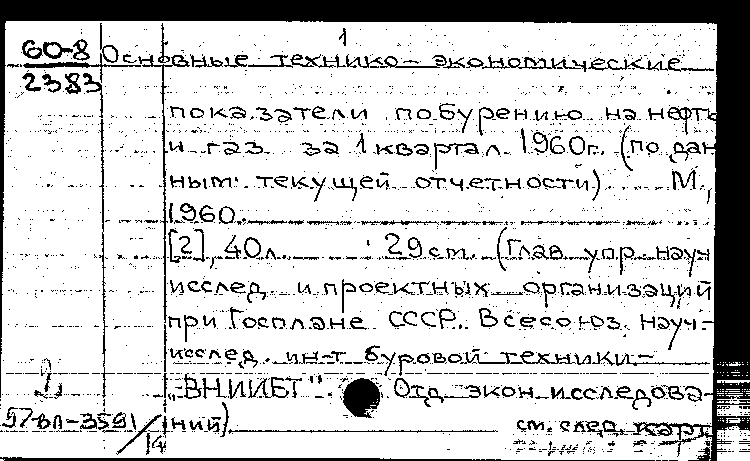 1
60-8 Основные технико-экономические
2383
показатели по бурению на нефть
и газ за 1 квартал 1960г. (по дан
ным текущей отчетности) М.,
1960.
[2], 40л. 29 см. (Глав упр. науч
исслед. и проектных организаций
при Госплане СССР. Всесоюз. науч-
исслед. ин-т буровой техники.-
"ВНИИБТ". Отд. экон. исследова-
ний).
см. след. карт